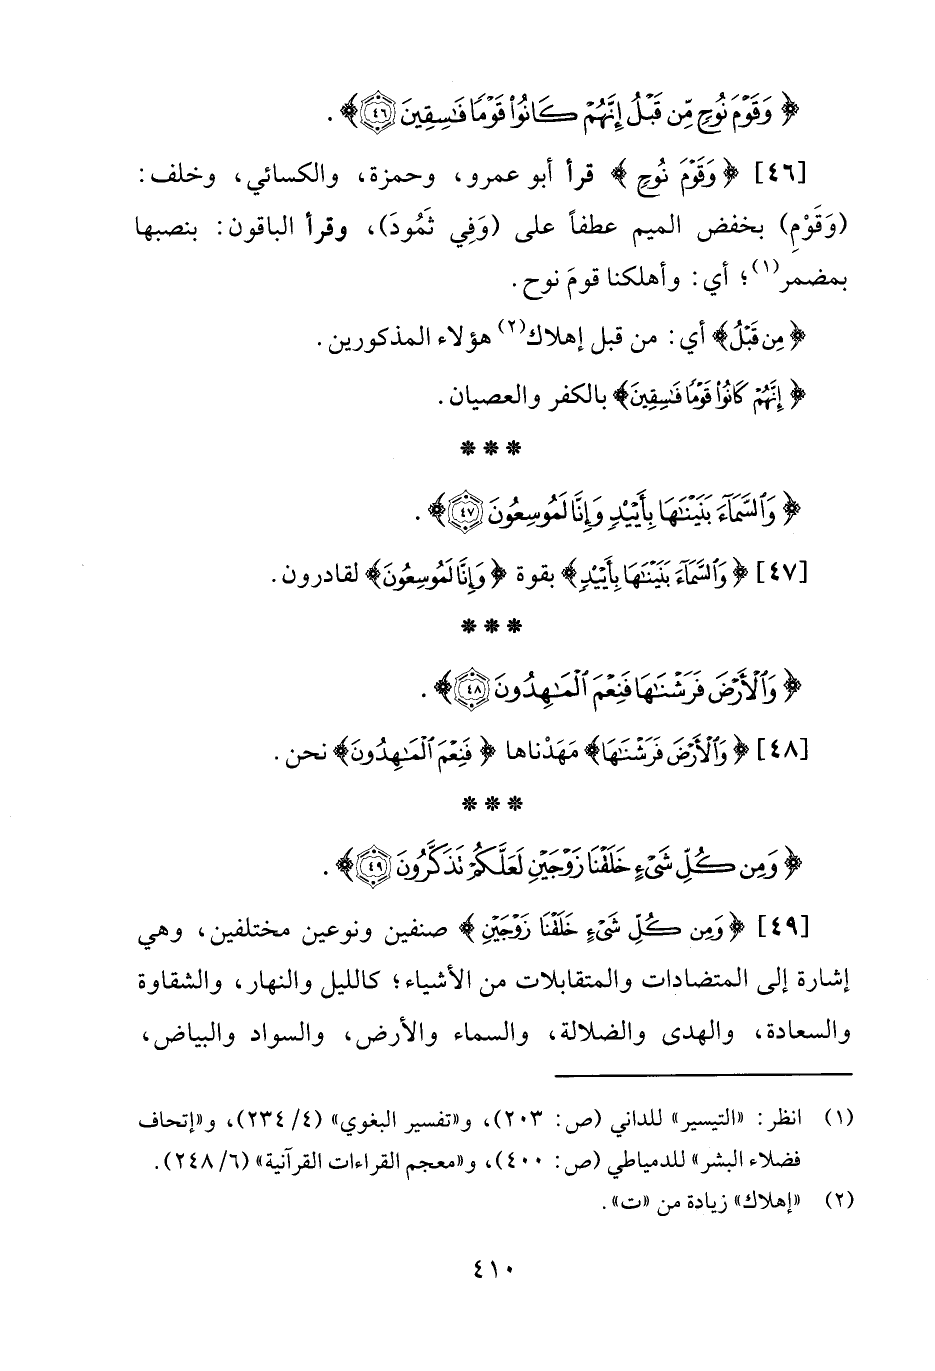 ﴿ وَقَوْمَ نُوحٍ مِّن قَبْلُ إِنَّهُمْ كَانُوا۟ قَوْمًا فَـٰسِقِينَ ٤٦ ﴾ .
[٤٦] ﴿ وَقَوْمَ نُوحٍ ﴾ قرأ أبو عمرو، وحمزة، والكسائي، وخلف:
(وَقَوْمِ) بخفض الميم عطفاً على (وَفِي ثَمُودَ)، وقرأ الباقون: بنصبها
بمضمر(١)؛ أي: وأهلكنا قومَ نوح.
﴿ مِن قَبْلُ ﴾ أي: من قبل إهلاك(٢) هؤلاء المذكورين.
﴿ إِنَّهُمْ كَانُوا۟ قَوْمًا فَـٰسِقِينَ ﴾ بالكفر والعصيان.
* * *
﴿ وَٱلسَّمَآءَ بَنَيْنَـٰهَا بِأَيْيْدٍ وَإِنَّا لَمُوسِعُونَ ٤٧ ﴾ .
[٤٧] ﴿ وَٱلسَّمَآءَ بَنَيْنَـٰهَا بِأَيْيْدٍ ﴾ بقوة ﴿ وَإِنَّا لَمُوسِعُونَ ﴾ لقادرون.
* * *
﴿ وَٱلْأَرْضَ فَرَشْنَـٰهَا فَنِعْمَ ٱلْمَـٰهِدُونَ ٤٨ ﴾ .
[٤٨] ﴿ وَٱلْأَرْضَ فَرَشْنَـٰهَا ﴾ مَهَدْناها ﴿ فَنِعْمَ ٱلْمَـٰهِدُونَ ﴾ نحن.
* * *
﴿ وَمِن كُلِّ شَىْءٍ خَلَقْنَا زَوْجَيْنِ لَعَلَّكُمْ تَذَكَّرُونَ ٤٩ ﴾ .
[٤٩] ﴿ وَمِن كُلِّ شَىْءٍ خَلَقْنَا زَوْجَيْنِ ﴾ صنفين ونوعين مختلفين، وهي
إشارة إلى المتضادات والمتقابلات من الأشياء؛ كالليل والنهار، والشقاوة
والسعادة، والهدى والضلالة، والسماء والأرض، والسواد والبياض،
(١) انظر: «التيسير» للداني (ص: ٢٠٣)، و«تفسير البغوي» (٤/ ٢٣٤)، و«إتحاف
فضلاء البشر» للدمياطي (ص: ٤٠٠)، و«معجم القراءات القرآنية» (٦/ ٢٤٨).
(٢) «إهلاك» زيادة من «ت».
٤١٠